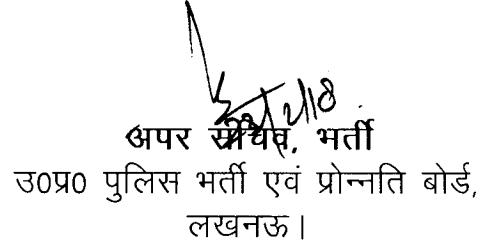 अपर सचिव, भर्ती
उ0प्र0 पुलिस भर्ती एवं प्रोन्नति बोर्ड,
लखनऊ।